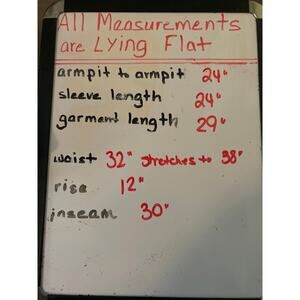 All Measurements
are Lying Flat
armpit to armpit 24"
sleeve length 24"
garment length 29"
waist 32" stretches to 38"
rise 12"
inseam 30"